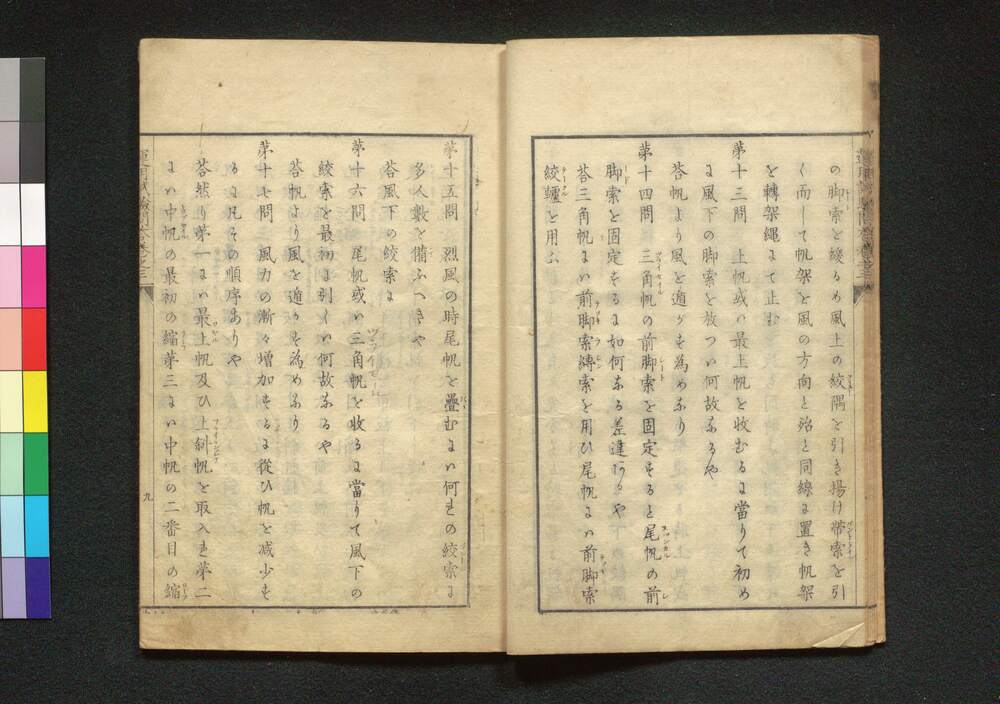 の脚索を緩るめ風上の絞隅を引き揚け帶索を引
く而して帆架を風の方向と殆と同線に置き帆架
を轉架繩にて止む
第十三問　上帆或い最上帆を收むるに當りて初め
に風下の脚索を放つい何故なるや
荅帆より風を遁かを為めなり
第十四問　三角帆の前脚索を固定をると尾帆の前
脚索を固定をるに如何なる差違ありや
荅三角帆にい前脚索縳索を用ひ尾帆にい前脚索
絞轤を用ふ
第十五問　烈風の時尾帆を疊むにい何れの絞索に
多人數を備ふへきや
荅風下の絞索に
第十六問　尾帆或い三角帆を收るに當りて風下の
絞索を最初に引くい何故なるや
荅帆より風を遁かを為めなり
第十七問　風力の漸々増加をるに從ひ帆を減少を
るに凡その順序ありや
荅然り第一にい最上帆及ひ上斜帆を取入れ第二
にい中帆の最初の縮第三にい中帆の二番目の縮
九